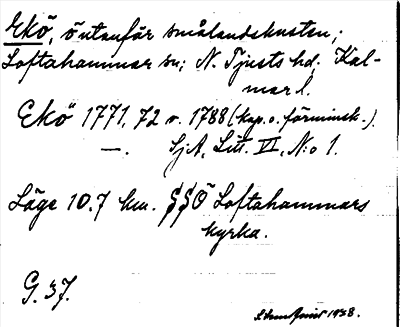 Ekö, ö utanför smålandskusten,;
Loftahammar sn; N. Tjusts hd, Kal-
mar l.
Ekö 1771, 72 o. 1788 (kap. o. förminsk.).
—. SjA, Litt. VI, N:o 1.
Läge 10.7 km. SSO Loftahammars
kyrka.
G. 37.
1938.